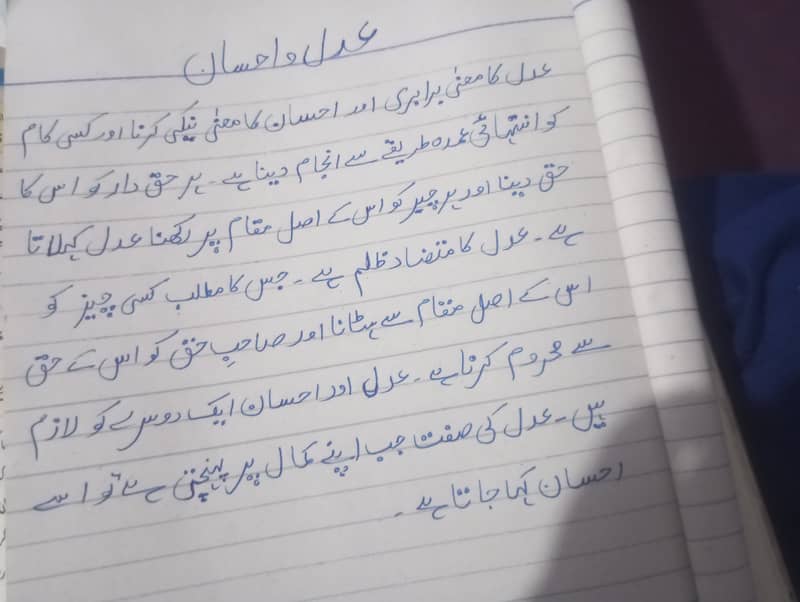 عدل و احسان
عدل کا معنیٰ برابری اور احسان کا معنیٰ نیکی کرنا اور کسی کام
کو انتہائی عمدہ طریقے سے انجام دینا ہے۔ ہر حق دار کو اس کا
حق دینا اور ہر چیز کو اس کے اصل مقام پر رکھنا عدل کہلاتا
ہے۔ عدل کا متضاد ظلم ہے۔ جس کا مطلب کسی چیز کو
اس کے اصل مقام سے ہٹانا اور صاحبِ حق کو اس کے حق
سے محروم کرنا ہے۔ عدل اور احسان ایک دوسرے کو لازم
ہیں۔ عدل کی صفت جب اپنے کمال پر پہنچتی ہے تو اسے
احسان کہا جاتا ہے۔